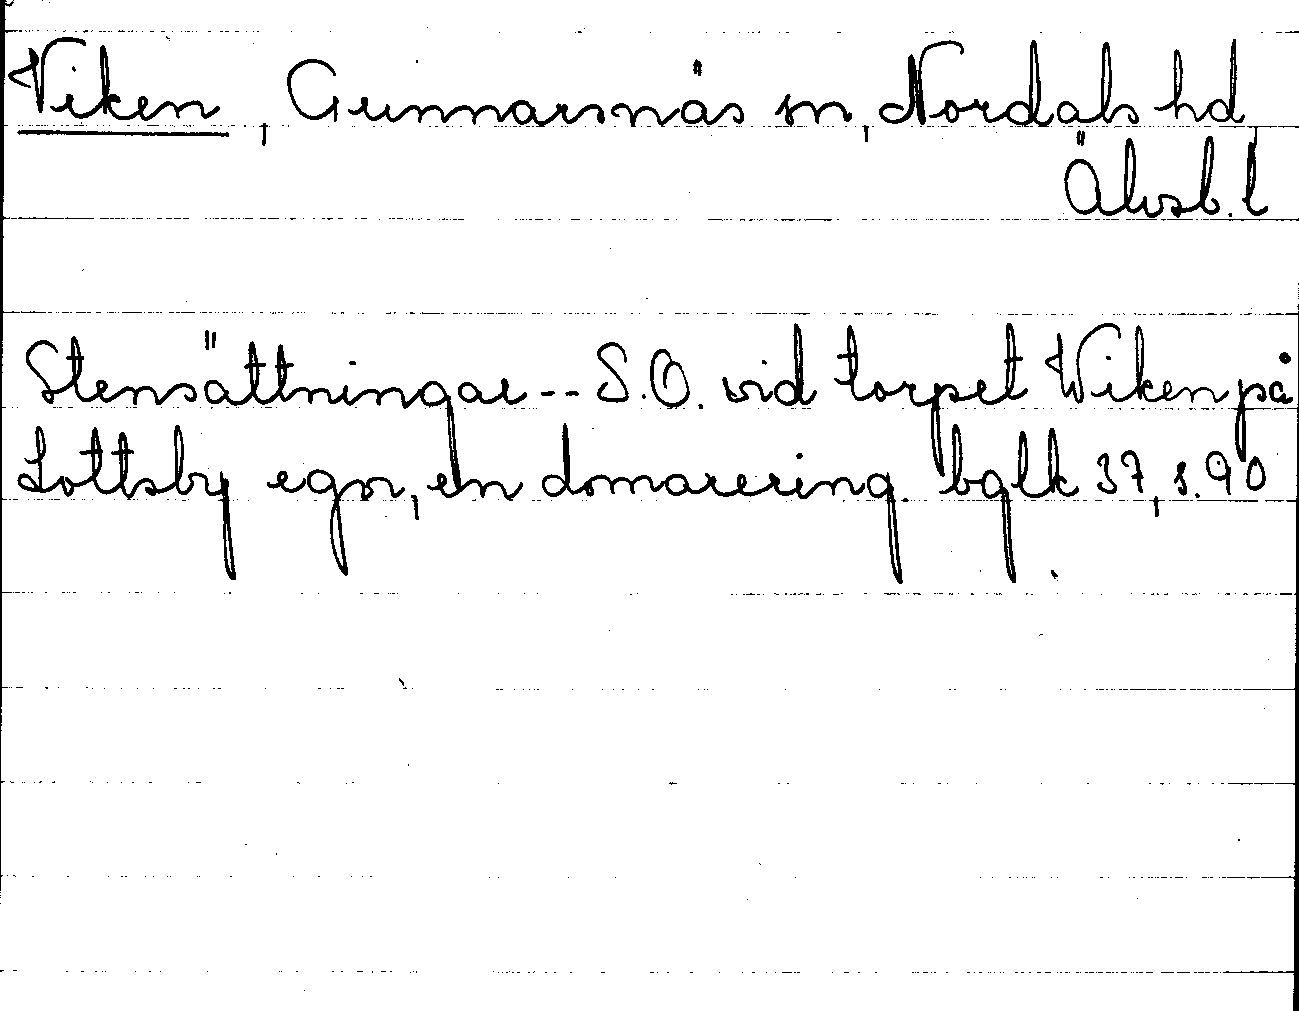 Viken, Gunnarsnäs sn, Nordals hd,
Älvsb. l
Stensättningar -- S.O. vid torpet Wiken på
Lottsby egor, en domarering. bglk 37, s. 90